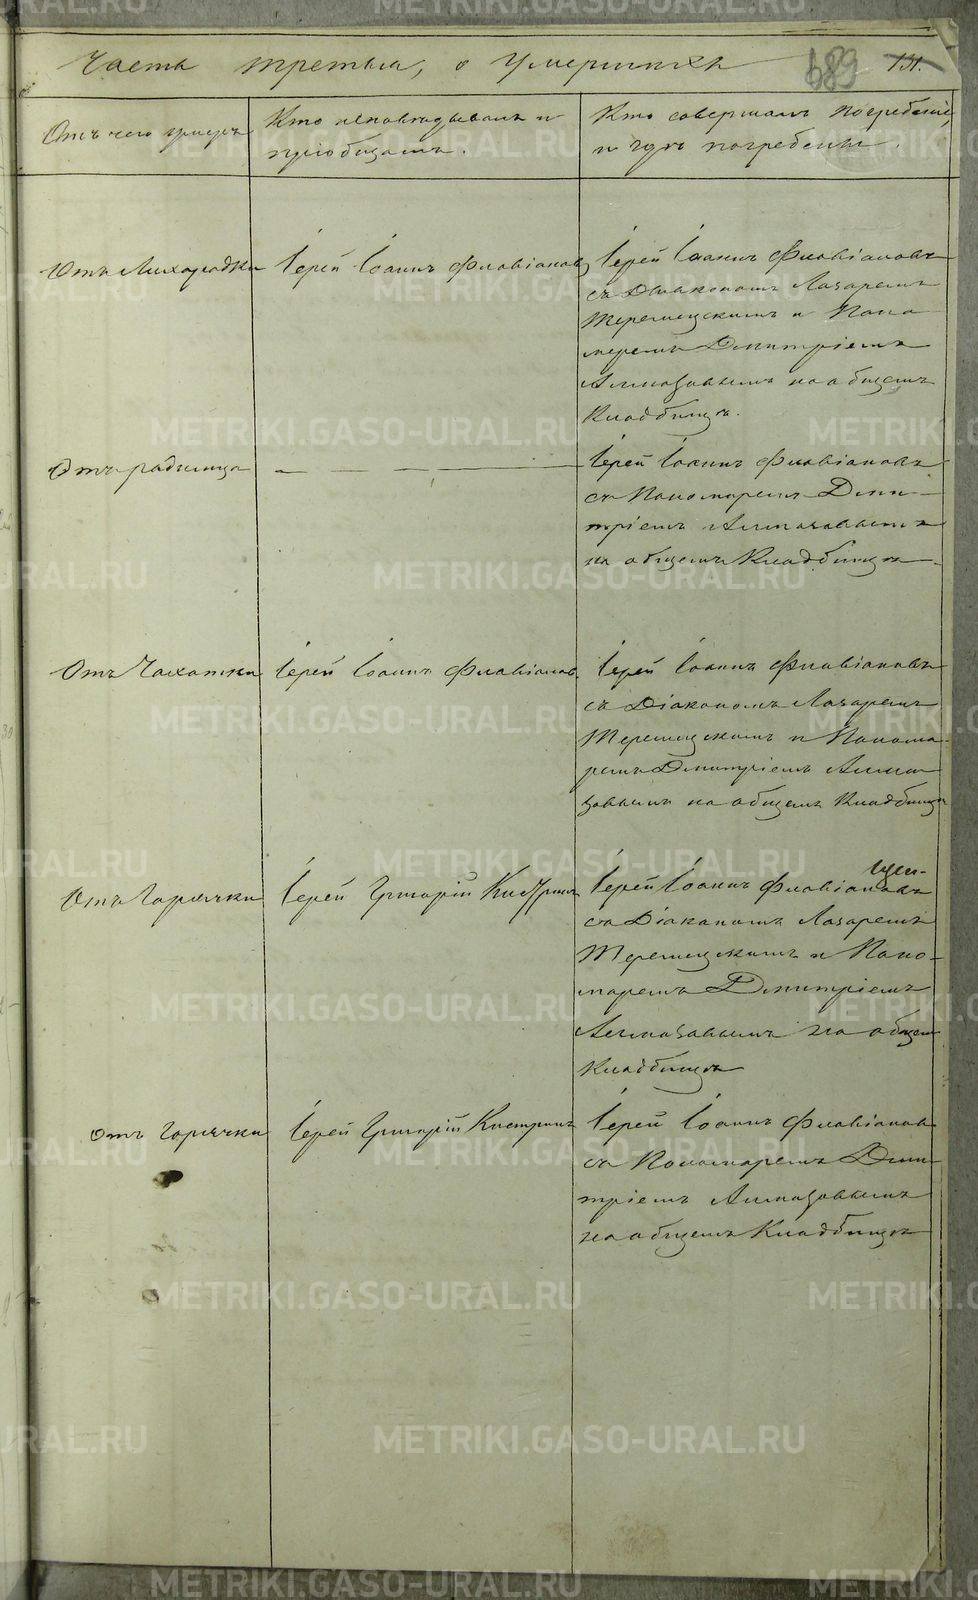 Часть третья, о умершихъ 689 131.
Отъ чего умеръ
Кто исповѣдывалъ и
пріобщалъ.
Кто совершалъ погребеніе,
и гдѣ погребены.
Отъ Лихорадки
Іерей Іоаннъ Флавіановъ
Іерей Іоаннъ Флавіановъ
съ Діякономъ Лазаремъ
Теремецскимъ и Поно
маремъ Дмитріемъ
Алмазовымъ на общемъ
Кладбищѣ.
Отъ родимца
— — —
Іерей Іоаннъ Флавіановъ
съ Пономаремъ Дми-
тріемъ Алмазовымъ
на общемъ Кладбищѣ.
Отъ Чахотки
Іерей Іоаннъ Флавіановъ
Іерей Іоаннъ Флавіановъ
съ Діакономъ Лазаремъ
Теремецскимъ и Понома-
ремъ Дмитріемъ Алма
зовымъ на общемъ Кладбищѣ
Отъ Горячки
Іерей Григорій Кастринъ
Іерей Іоаннъ Флавіановъ
съ Діакономъ Лазаремъ
Теремецскимъ и Поно-
маремъ Дмитріемъ
Алмазовымъ на общем
Кладбищѣ
Отъ Горячки
Іерей Григорій Кастринъ
Іерей Іоаннъ Флавіановъ
съ Пономаремъ Дми-
тріемъ Алмазовымъ
на общемъ Кладбищѣ
METRIKI.GASO-URAL.RU